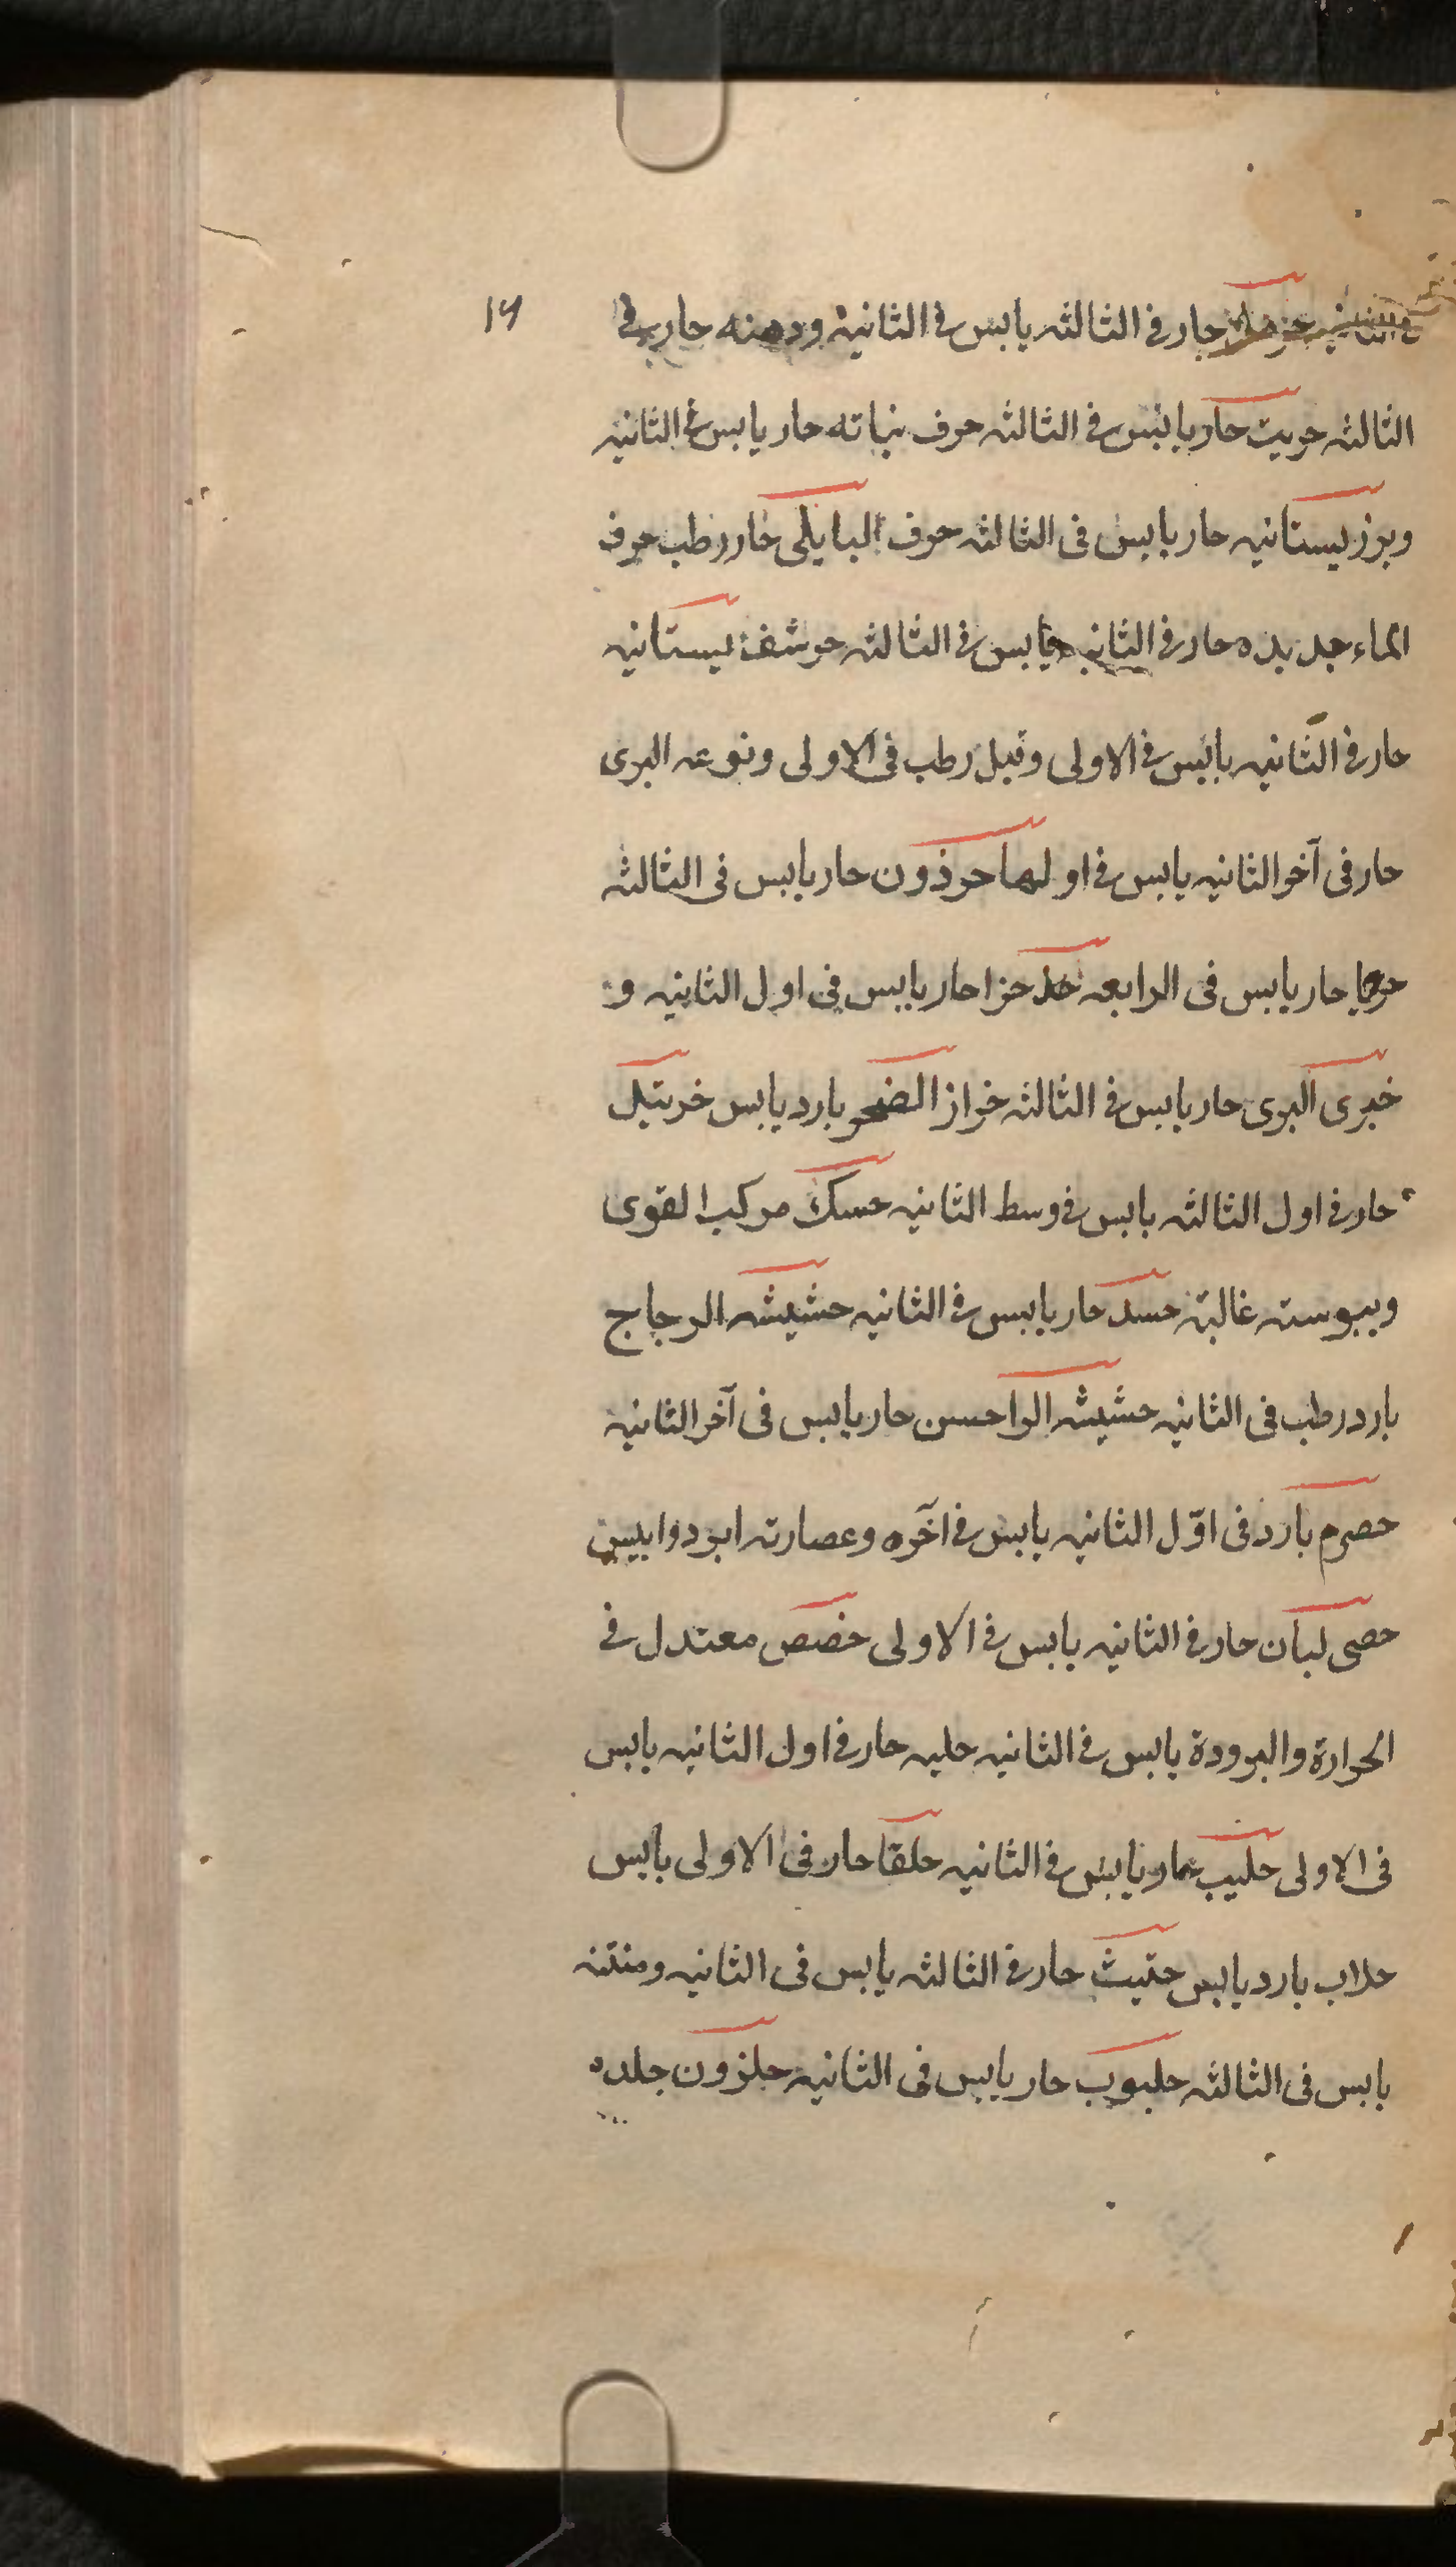 حار فى الثالثه يابس فى الثانية ودهنه حار فى
١٦
الثالثه حربث حار يابس فى الثالثه حرف نباته حار يابس فى الثانيه
وبرز بستانيه حار يابس فى الثالثه حرف البابلى حار رطب حرف
الماء جديده حار فى الثانيه يابس فى الثالثه حرشف بستانيه
حار فى الثانيه يابس فى الاولى وقيل رطب فى الاولى ونوعه البرى
حار فى آخر الثانيه يابس فى اولها حرذون حار يابس فى الثالثه
حار يابس فى الرابعه حزا حار يابس فى اول الثانيه و
البرى حار يابس فى الثالثه حزاز الصخر بارد يابس خرنبل
حار فى اول الثالثه يابس فى وسط الثانيه حسك مركب القوى
ويبوسته غالبة حسد حار يابس فى الثانيه حشيشه الزجاج
بارد رطب فى الثانيه حشيشه الراحسن حار يابس فى آخر الثانية
حصرم بارد فى اوّل الثانيه يابس فى آخره وعصارته ابرد وايبس
حصى لبان حار فى الثانيه يابس فى الاولى حضض معتدل فى
الحرارة والبرودة يابس فى الثانيه حلبه حار فى اول الثانيه يابس
فى الاولى حليب حار يابس فى الثانيه حلقا حار فى الاولى يابس
حلاب بارد يابس حتيث حار فى الثالثه يابس فى الثانيه ومنتنه
يابس فى الثالثه حلبوب حار يابس فى الثانيه حلزون جلده